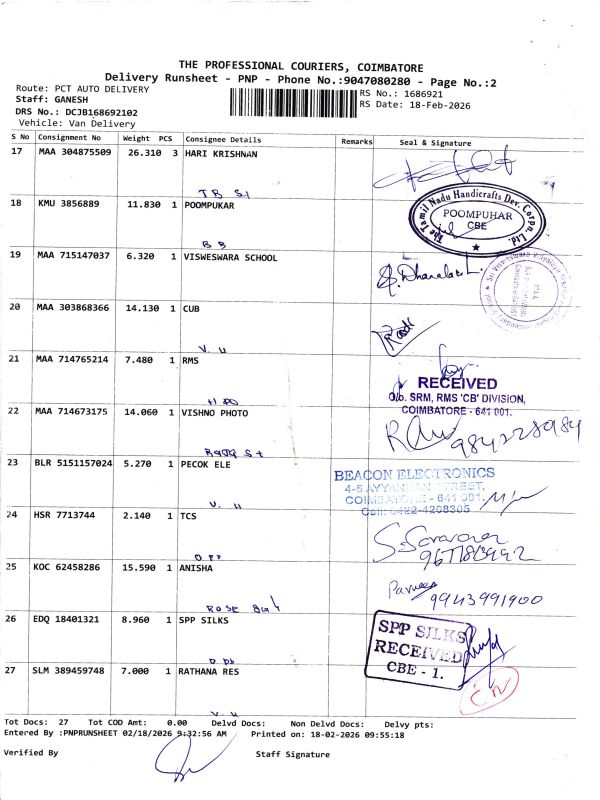 THE PROFESSIONAL COURIERS, COIMBATORE
Delivery Runsheet - PNP - Phone No.:9047080280 - Page No.:2
Route: PCT AUTO DELIVERY
Staff: GANESH
DRS No.: DCJB168692102
Vehicle: Van Delivery
RS No.: 1686921
RS Date: 18-Feb-2026
S No Consignment No Weight PCS Consignee Details Remarks Seal & Signature
17 MAA 304875509 26.310 3 HARI KRISHNAN
TB St
18 KMU 3856889 11.830 1 POOMPUKAR
The Tamil Nadu Handicrafts Dev. Corpn. Ltd.
POOMPUHAR
CBE
BB
19 MAA 715147037 6.320 1 VISWESWARA SCHOOL
20 MAA 303868366 14.130 1 CUB
V. H
21 MAA 714765214 7.480 1 RMS
RECEIVED
O/o. SRM, RMS 'CB' DIVISION,
COIMBATORE - 641 001.
H PO
22 MAA 714673175 14.060 1 VISHNO PHOTO
23 BLR 5151157024 5.270 1 PECOK ELE
BEACON ELECTRONICS
4-5 AYYANNAN STREET,
COIMBATORE - 641 001.
Cell: 0422-4208305
V. H
24 HSR 7713744 2.140 1 TCS
S. Saravanan
25 KOC 62458286 15.590 1 ANISHA
Parveen
9943991900
26 EDQ 18401321 8.960 1 SPP SILKS
SPP SILKS
RECEIVED
CBE - 1.
27 SLM 389459748 7.000 1 RATHANA RES
Tot Docs: 27 Tot COD Amt: 0.00 Delvd Docs: Non Delvd Docs: Delvy pts:
Entered By :PNPRUNSHEET 02/18/2026 9:32:56 AM Printed on: 18-02-2026 09:55:18
Verified By Staff Signature